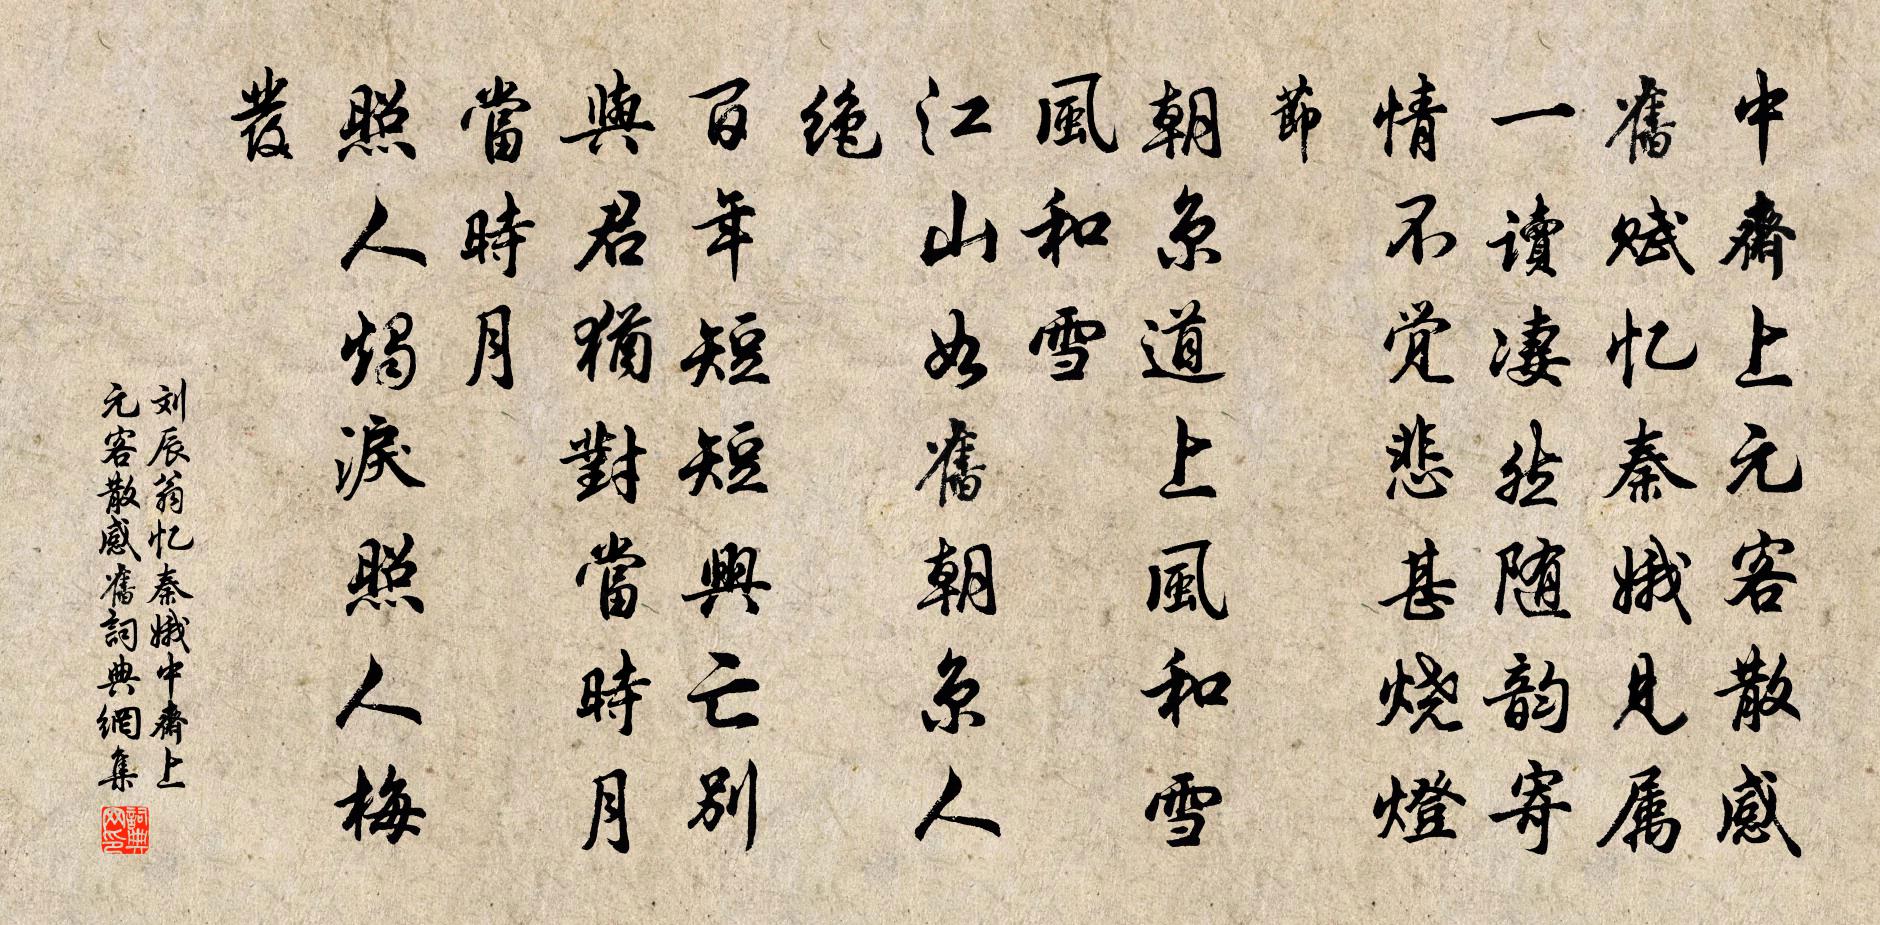 中齋上元客散感
舊賦忆秦娥見属
一讀凄然随韵寄
情不觉悲甚烧燈
節
朝京道上風和雪
風和雪
江山如舊朝京人
绝
百年短短興亡别
與君猶對當時月
當時月
照人燭淚照人梅
發
刘辰翁忆秦娥中齋上
元客散感舊詞典網集
詞典网印